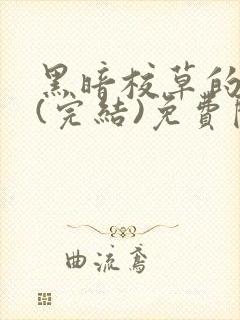 黑暗校草的
(完結)免費
曲流鳶